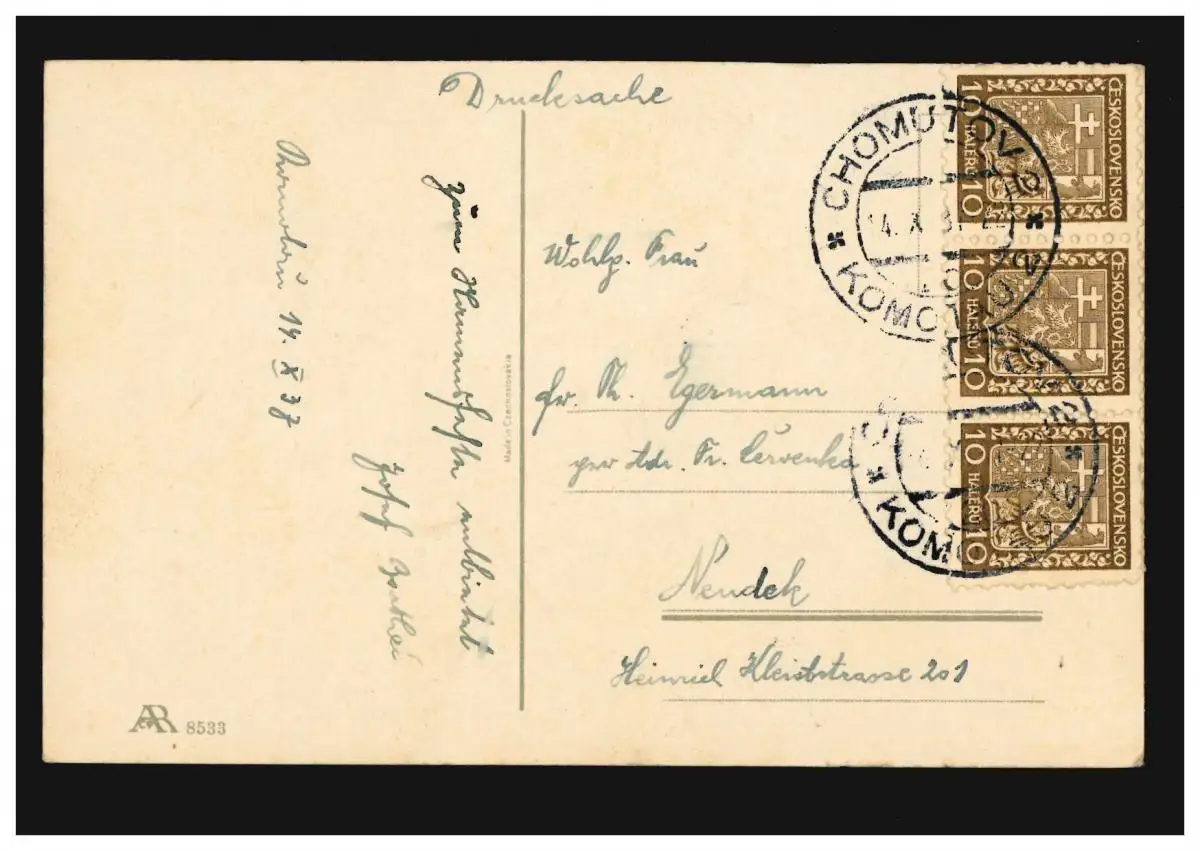 Drucksache
Komotau 14. X 37
Zum Namensfeste entbietet
Josef
Made in Czechoslovakia
AR 8533
Wohlg. Frau
Fr. Th. Egermann
per Adr. Fr. Červenka
Neudek
Heinrich Kleiststrasse 201
ČESKOSLOVENSKO
10 HALÉŘŮ 10
ČESKOSLOVENSKO
10 HALÉŘŮ 10
ČESKOSLOVENSKO
10 HALÉŘŮ 10
CHOMUTOV 2
14. X 37
KOMOTAU 2
KOMOTAU 2